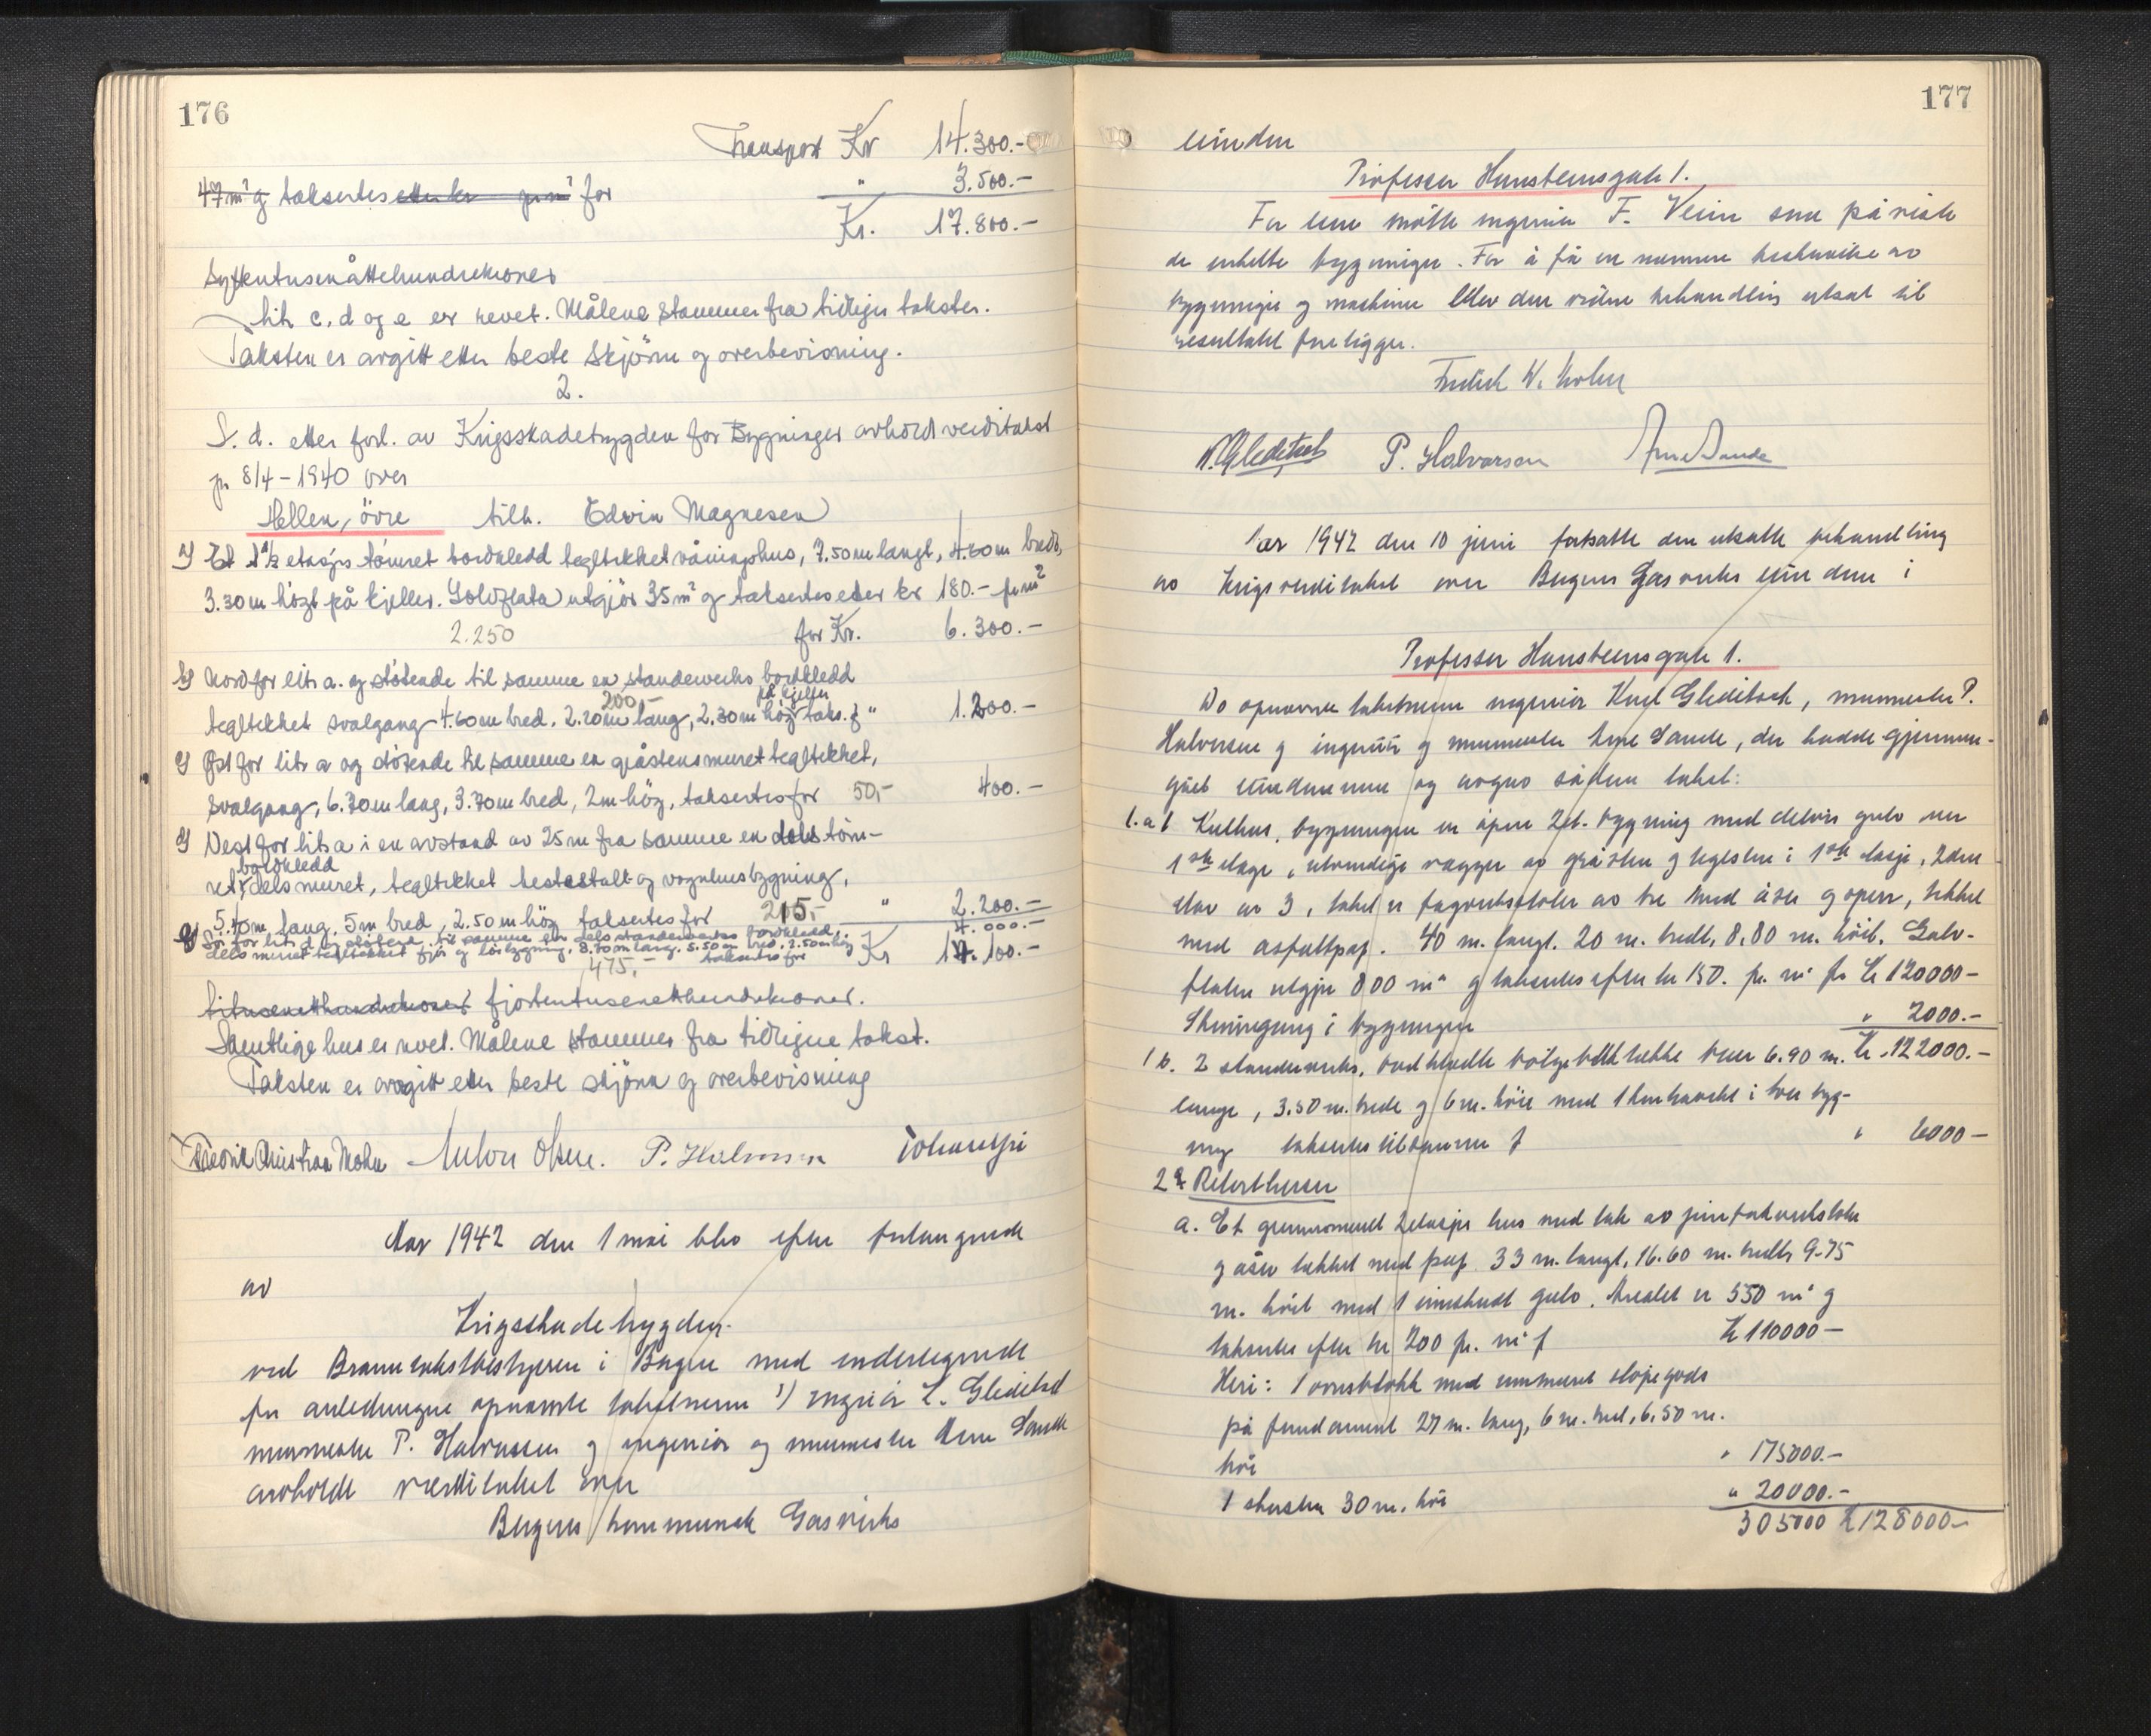 176
Transport Kr 14.300.-
47 m² og takseres etter kr pr m² for " 3.500.-
Kr. 17.800.-
Syttentusenåttehundrekroner
Litr c, d og e er revet. Målene stammer fra tidligere takster.
Taksten er avgitt etter beste skjönn og overbevisning.
2.
S. d. etter forl. av Krigsskadetrygden for Bygninger avholdt verditakst
pr 8/4 - 1940 over
Hellen, övre tilh. Edvin Magnesen
a) Et 1½ etasjes tömret bordkledd tegltekket våningshus, 7.50 m langt, 4.60 m bredt,
3.30 m högt på kjeller. Golvflata utgjör 35 m² og takseres etter kr 180.- pr m²
2.250 for Kr. 6.300.-
b) Nord for litr a. og stötende til samme en standerverks bordkledd
200.- på kjeller
tegltekket svalgang 4.60 m bred, 2.20 m lang, 2.30 m hög taks. f " 1.200.-
c) Öst for litr a og stötende til samme en gråstensmuret tegltekket,
svalgang, 6.70 m lang, 3.70 m bred, 2 m hög, takseres for 50,- 400.-
d) Vest for litr a i en avstand av 25 m fra samme en dels töm-
bordkledd
ret, dels muret, tegltekket hestestall og vognhusbygning,
5.40 m lang, 5 m bred, 2.50 m hög takseres for 215,- " 2.200.-
e) Sör for litr d og stötende til samme en dels standerverks bordkledd, 4.000.-
dels muret tegltekket fjös og löebygning, 8.70 m lang, 5.50 m bred, 2.50 m hög
475,- takseres for Kr 14.100.-
titusenetthundrekroner fjortentusenetthundrekroner.
Samtlige hus er revet. Målene stammer fra tidligere takst.
Taksten er avgitt etter beste skjönn og overbevisning
Fredrik Christian Mohn Anton Olsen. P. Halvorsen
Aar 1942 den 1 mai blev efter forlangende
av
Krigsskadetrygden
ved Branntakstbestyreren i Bergen med undertegnede
for anledningen opnevnte takstmenn 1) ingeniör K. Gleditsch
murmester P. Halvorsen og ingeniör og murmester Arne Sande
avholdt verditakst over
Bergens kommunale Gasverks
177
eiendom
Professor Hansteensgate 1.
For eieren mötte ingeniör F. Vein som påviste
de enkelte bygninger. For å få en nærmere beskrivelse av
bygninger og maskiner blev den videre behandling utsat til
resultatet foreligger.
Fredrik W. Mohn
K. Gleditsch P. Halvorsen Arne Sande
Aar 1942 den 10 juni fortsatte den utsatte behandling
av Krigsverditakst over Bergens Gasverks eiendom i
Professor Hansteensgate 1.
De opnevnte takstmenn ingeniör Knut Gleditsch, murmester P.
Halvorsen og ingeniör og murmester Arne Sande, der hadde gjennem-
gått eiendommen og avgav sådan takst:
1. a 1 Kulhus, bygningen en åpen 2et. bygning med delvis gulv over
1ste etage, utvendige vægger av gråsten og teglsten i 1ste etasje, 2den
etar er 3, taket er fagverkstoler av tre med åser og sperr, tekket
med asfaltpap. 40 m. langt, 20 m. bredt, 8,80 m. höit. Gulv-
flaten utgjör 800 m² og takseres efter kr 150. pr. m² for Kr 120000-
Skinnegang i bygningen " 2000.-
1 b. 2 standerverks, bordkledde bölgeblikktekkte buer 6.90 m. Kr. 122000.-
lange, 3.50 m. brede og 6 m. höie med 1 kulknuser i hver byg-
ning takseres tilsammen f " 6000-
2 Retorthuset
a. Et grunnmuret 2etasjes hus med tak av jernfakverkstoler
og åser tekket med pap 33 m. langt, 16.60 m. bredt, 9.75
m. höit med 1 innskudt gulv. Arealet er 550 m² og
takseres efter kr 200 pr. m² f Kr 110000-
Heri: 1 ovnsblokk med innmuret stöpegods
på fundament 27 m. lang, 6 m. bred, 6.50 m.
höi " 175000.-
1 skorsten 30 m. höi " 20000.-
305000 Kr 128000-